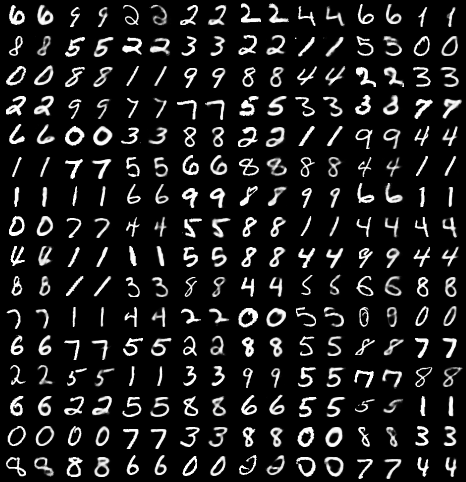 6 6 9 9 2 2 2 2 2 2 4 4 6 6 1 1
8 8 5 5 2 2 3 3 2 2 1 1 5 5 0 0
0 0 8 8 1 1 9 9 8 8 4 4 2 2 3 3
2 2 9 9 7 7 7 7 5 5 3 3 3 3 7 7
6 6 0 0 3 3 8 8 2 2 1 1 9 9 4 4
1 1 7 7 5 5 6 6 8 8 8 8 4 4 1 1
1 1 1 1 6 6 9 9 8 8 9 9 6 6 1 1
0 0 7 7 4 4 5 5 8 8 1 1 4 4 4 4
4 4 1 1 1 1 5 5 8 8 4 4 9 9 4 4
8 8 1 1 3 3 8 8 4 4 5 5 6 6 8 8
7 7 1 1 4 4 2 2 0 0 5 5 0 0 0
6 6 7 7 5 5 2 2 8 8 5 5 8 8 7 7
2 2 5 5 1 1 3 3 9 9 5 5 7 7 8 8
6 6 2 2 5 5 8 8 6 6 5 5 5 5 1 1
0 0 0 0 7 7 3 3 8 8 0 0 8 8 3 3
8 8 8 8 6 6 0 0 2 2 0 0 7 7 4 4